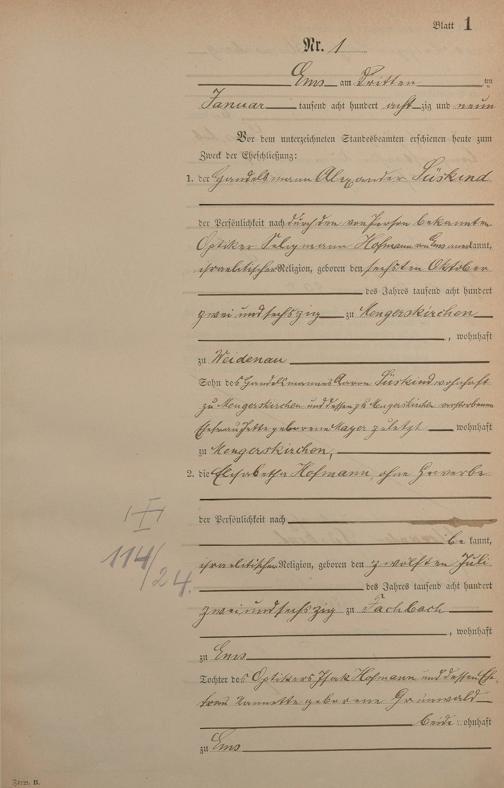 Blatt 1
Nr. 1
Ems am Dritten ten
Januar tausend acht hundert acht zig und neun
Vor dem unterzeichneten Standesbeamten erschienen heute zum
Zweck der Eheschließung:
1. der Handelsmann Alexander Süskind
der Persönlichkeit nach durch den von Person bekannten
Optiker Seligmann Hofmann von Ems anerkannt,
israelitischer Religion, geboren den sechsten Oktober
des Jahres tausend acht hundert
zwei und sechszig zu Mengerskirchen
, wohnhaft
zu Weidenau
Sohn des Handelsmannes Aaron Süskind wohnhaft
zu Mengerskirchen und dessen zu Mengerskirchen verstorbenen
Ehefrau Jette geborene Mayer zuletzt wohnhaft
zu Mengerskirchen,
2. die Elisabetha Hofmann, ohne Gewerbe
der Persönlichkeit nach
be kannt,
israelitischer Religion, geboren den zwölften Juli
des Jahres tausend acht hundert
zwei und sechszig zu Fachbach
, wohnhaft
zu Ems
Tochter des Optikers Isak Hofmann und dessen Ehe-
frau Nannette geborene Grünwald
beide wohnhaft
zu Ems
I
114/24.
Form. B.